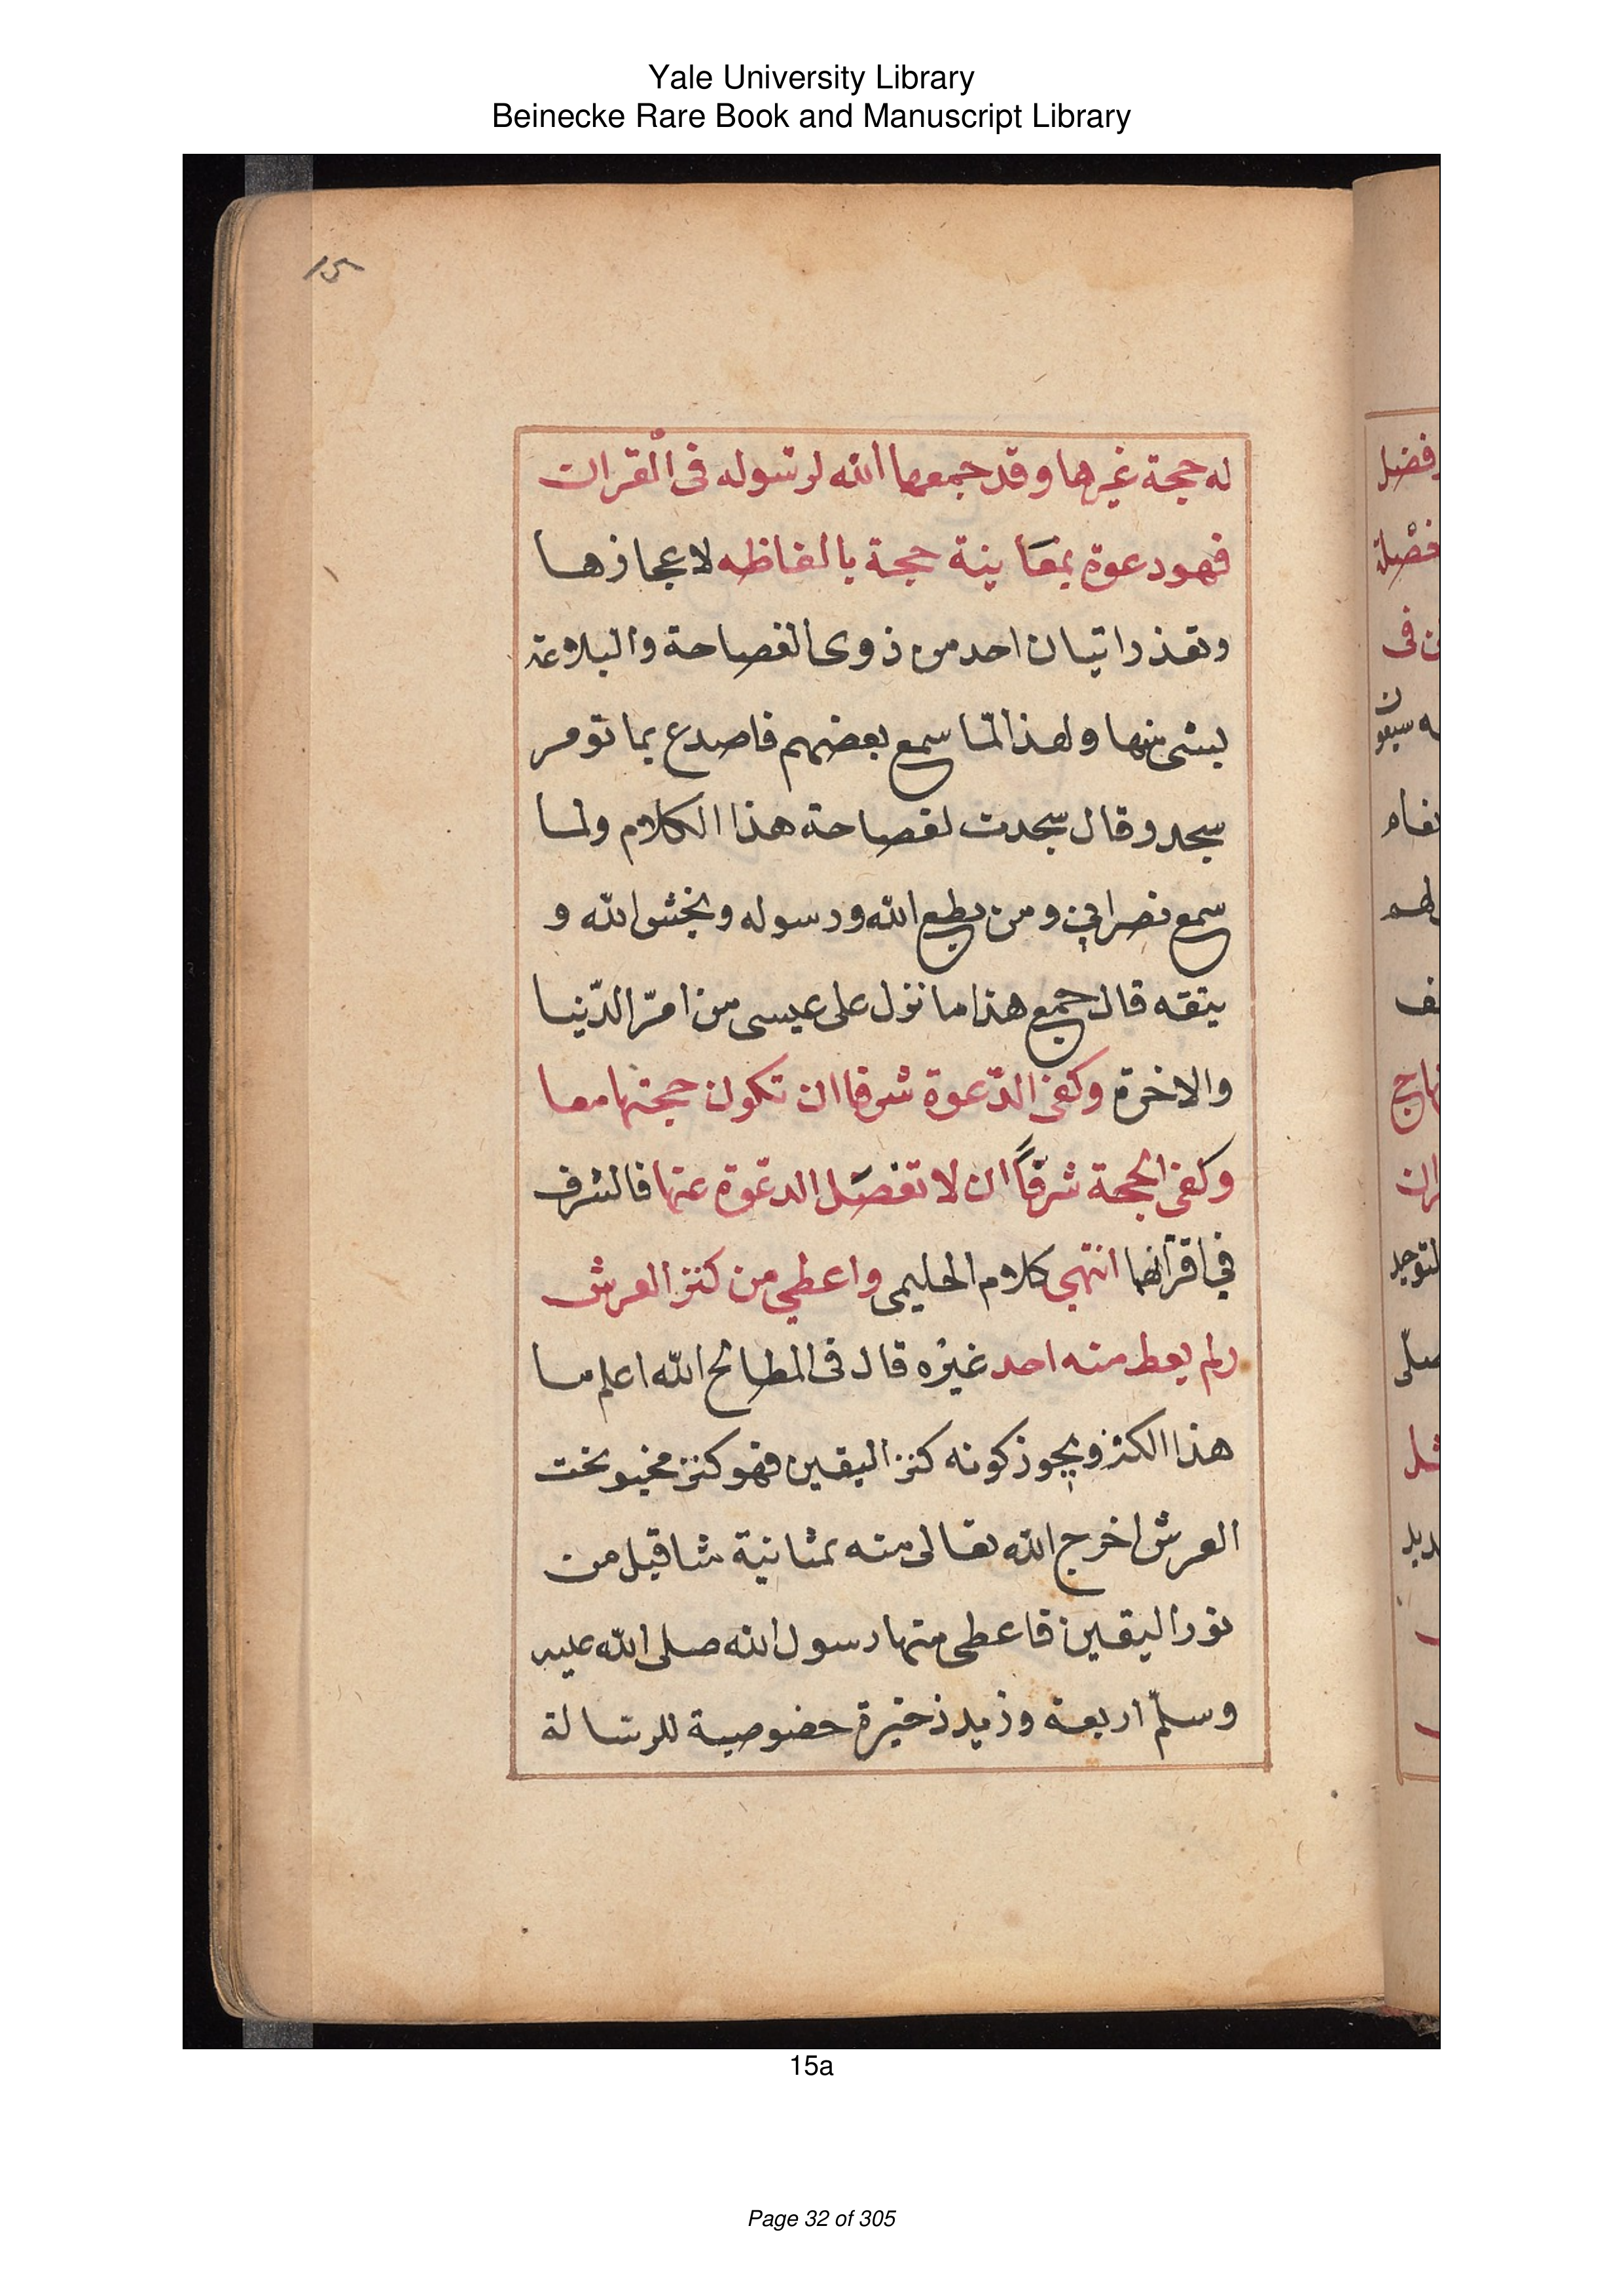 Yale University Library
Beinecke Rare Book and Manuscript Library
15
له حجة غيرها وقد جمعها الله لرسوله فى القران
فهو دعوة بمعَا ينة حجة بالفاظه لاعجازها
وتعذر اتيان احد من ذوى الفصاحة والبلاغة
بشئ منها ولهذا لمّا سمع بعضهم فاصدع بما تومر
سجد وقال سجدت لفصاحة هذا الكلام ولما
سمع نصرانى ومن يطع الله ورسوله ويخش الله و
يتقه قال جمع هذا ما نزل على عيسى من امرّ الدّنيا
والاخرة وكفى الدّعوة شرفا ان تكون حجتها معا
وكفى الحجة شرفًا ان لا تفصَل الدعّوة عنها فالشرف
في اقرانهما انتهى كلام الحليمى واعطى من كنز العرش
ولم يعط منه احد غيره قال فى المطامح الله اعلم ما
هذا الكنز ويجوز كونه كنز اليقين فهو كنز مخبو تحت
العرش اخرج الله تعالى منه ثمانية مثاقيل من
نور اليقين فاعطى منها رسول الله صلى الله عليه
وسلّم اربعة وزيد ذخيرة خصوصية للرسالة
15a
Page 32 of 305